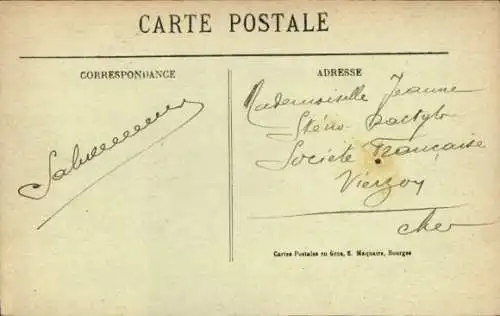 CARTE POSTALE
CORRESPONDANCE
ADRESSE
Mademoiselle Jeanne
Sténo Dactylo
Société Française
Vierzon
Cher
Cartes Postales en Gros, E. Maquaire, Bourges